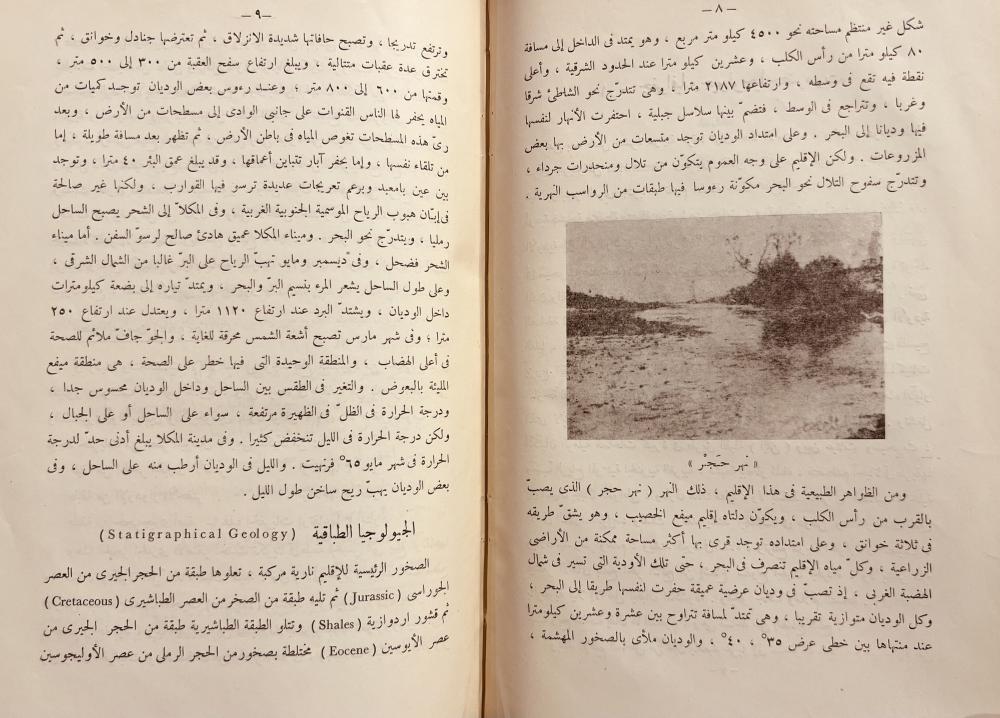 —٨—
شكل غير منتظم مساحته نحو ٤٥٠٠ كيلو متر مربع ، وهو يمتد فى الداخل إلى مسافة
٨٠ كيلو مترا من رأس الكلب ، وعشرين كيلو مترا عند الحدود الشرقية ، وأعلى
نقطة فيه تقع فى وسطه . وارتفاعها ٢١٨٧ مترا . وهى تتدرّج نحو الشاطئ شرقا
وغربا ، وتتراجع فى الوسط ، فتضمّ بينها سلاسل جبلية ، احتفرت الأنهار لنفسها
فيها وديانا إلى البحر . وعلى امتداد الوديان توجد متسعات من الأرض بها بعض
المزروعات . ولكن الإقليم على وجه العموم يتكوّن من تلال ومنحدرات جرداء ،
وتتدرّج سفوح التلال نحو البحر مكوّنة رءوسا فيها طبقات من الرواسب النهرية .
« نهر حَجْر »
ومن الظواهر الطبيعية فى هذا الإقليم ، ذلك النهر ( نهر حجر ) الذى يصبّ
بالقرب من رأس الكلب ، ويكوّن دلتاه إقليم ميفع الخصيب ، وهو يشقّ طريقه
فى ثلاثة خوانق ، وعلى امتداده توجد قرى بها أكثر مساحة ممكنة من الأراضى
الزراعية ، وكلّ مياه الإقليم تنصرف فى البحر ، حتّى تلك الأودية التى تسير فى شمال
الهضبة الغربى ، إذ تصبّ فى وديان عرضية عميقة حفرت لنفسها طريقا إلى البحر ،
وكل الوديان متوازية تقريبا ، وهى تمتدّ لمسافة تتراوح بين عشرة وعشرين كيلومترا
عند منتهاها بين خطى عرض ٣٥° ، ٤٠° ، والوديان ملأى بالصخور المهشمة ،
—٩—
وترتفع تدريجا ، وتصبح حافاتها شديدة الانزلاق ، ثم تعترضها جنادل وخوانق ، ثم
تخترق عدة عقبات متتالية ، ويبلغ ارتفاع سفح العقبة من ٣٠٠ إلى ٥٠٠ متر ،
وقمتها من ٦٠٠ إلى ٨٠٠ متر ؛ وعند رءوس بعض الوديان توجد كميات من
المياه يحفر لها الناس القنوات على جانبى الوادى إلى مسطحات من الأرض ، وبعد
رىّ هذه المسطحات تغوص المياه فى باطن الأرض ، ثم تظهر بعد مسافة طويلة ، إما
من تلقاء نفسها ، وإما بحفر آبار تتباين أعماقها ، وقد يبلغ عمق البئر ٤٠ مترا ، وتوجد
بين عين بامعبد وبرعم تعريجات عديدة ترسو فيها القوارب ، ولكنها غير صالحة
فى إبّان هبوب الرياح الموسمية الجنوبية الغربية ، وفى المكلاّ إلى الشحر يصبح الساحل
رمليا ، ويتدرّج نحو البحر . وميناء المكلا عميق هادئ صالح لرسوّ السفن . أما ميناء
الشحر فضحل ، وفى ديسمبر ومايو تهبّ الرياح على البرّ غالبا من الشمال الشرقى ،
وعلى طول الساحل يشعر المرء بنسيم البرّ والبحر ، ويمتدّ تياره إلى بضعة كيلومترات
داخل الوديان ، ويشتدّ البرد عند ارتفاع ١١٢٠ مترا ، ويعتدل عند ارتفاع ٢٥٠
مترا ؛ وفى شهر مارس تصبح أشعة الشمس محرقة للغاية ، والجوّ جافّ ملائم للصحة
فى أعلى الهضاب ، والمنطقة الوحيدة التى فيها خطر على الصحة ، هى منطقة ميفع
المليئة بالبعوض . والتغير فى الطقس بين الساحل وداخل الوديان محسوس جدا ،
ودرجة الحرارة فى الظلّ فى الظهيرة مرتفعة ، سواء على الساحل أو على الجبال ،
ولكن درجة الحرارة فى الليل تنخفض كثيرا . وفى مدينة المكلا يبلغ أدنى حدّ لدرجة
الحرارة فى شهر مايو ٦٥° فرنهيت . والليل فى الوديان أرطب منه على الساحل ، وفى
بعض الوديان يهبّ ريح ساخن طول الليل .
الجيولوجيا الطباقية (Statigraphical Geology)
الصخور الرئيسية للإقليم نارية مركبة ، تعلوها طبقة من الحجر الجيرى من العصر
الجوراسى (Jurassic) ثم تليه طبقة من الصخر من العصر الطباشيرى (Cretaceous)
ثم قشور اردوازية (Shales) وتتلو الطبقة الطباشيرية طبقة من الحجر الجيرى من
عصر الأيوسين (Eocene) مختلطة بصخور من الحجر الرملى من عصر الأوليجوسين